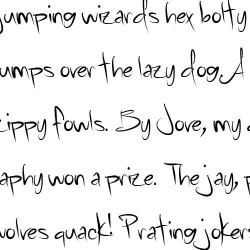 jumping wizards hex bolty
umps over the lazy dog.A
zippy fowls. By Jove, my
aphy won a prize. The jay, p
wolves quack! Prating joker